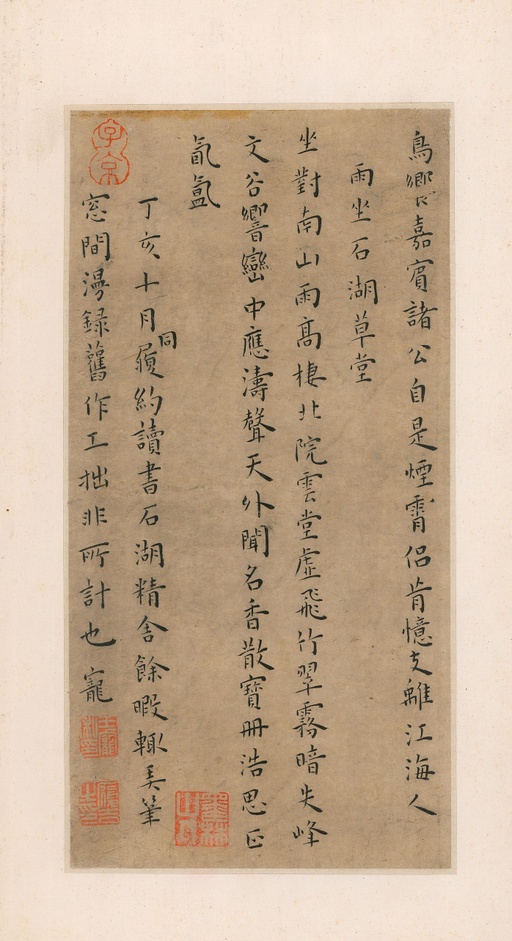 鳥嘉賓諸公自是煙霄侶肯憶支離江海人
雨坐石湖草堂
坐對南山雨高棲北院雲堂虛飛竹翠霧暗失峰
文谷響巒中應濤聲天外聞名香散寶冊浩思正
氤氳
丁亥十月同履約讀書石湖精舍餘暇輒弄筆
窓間漫録舊作工拙非所計也寵
子京